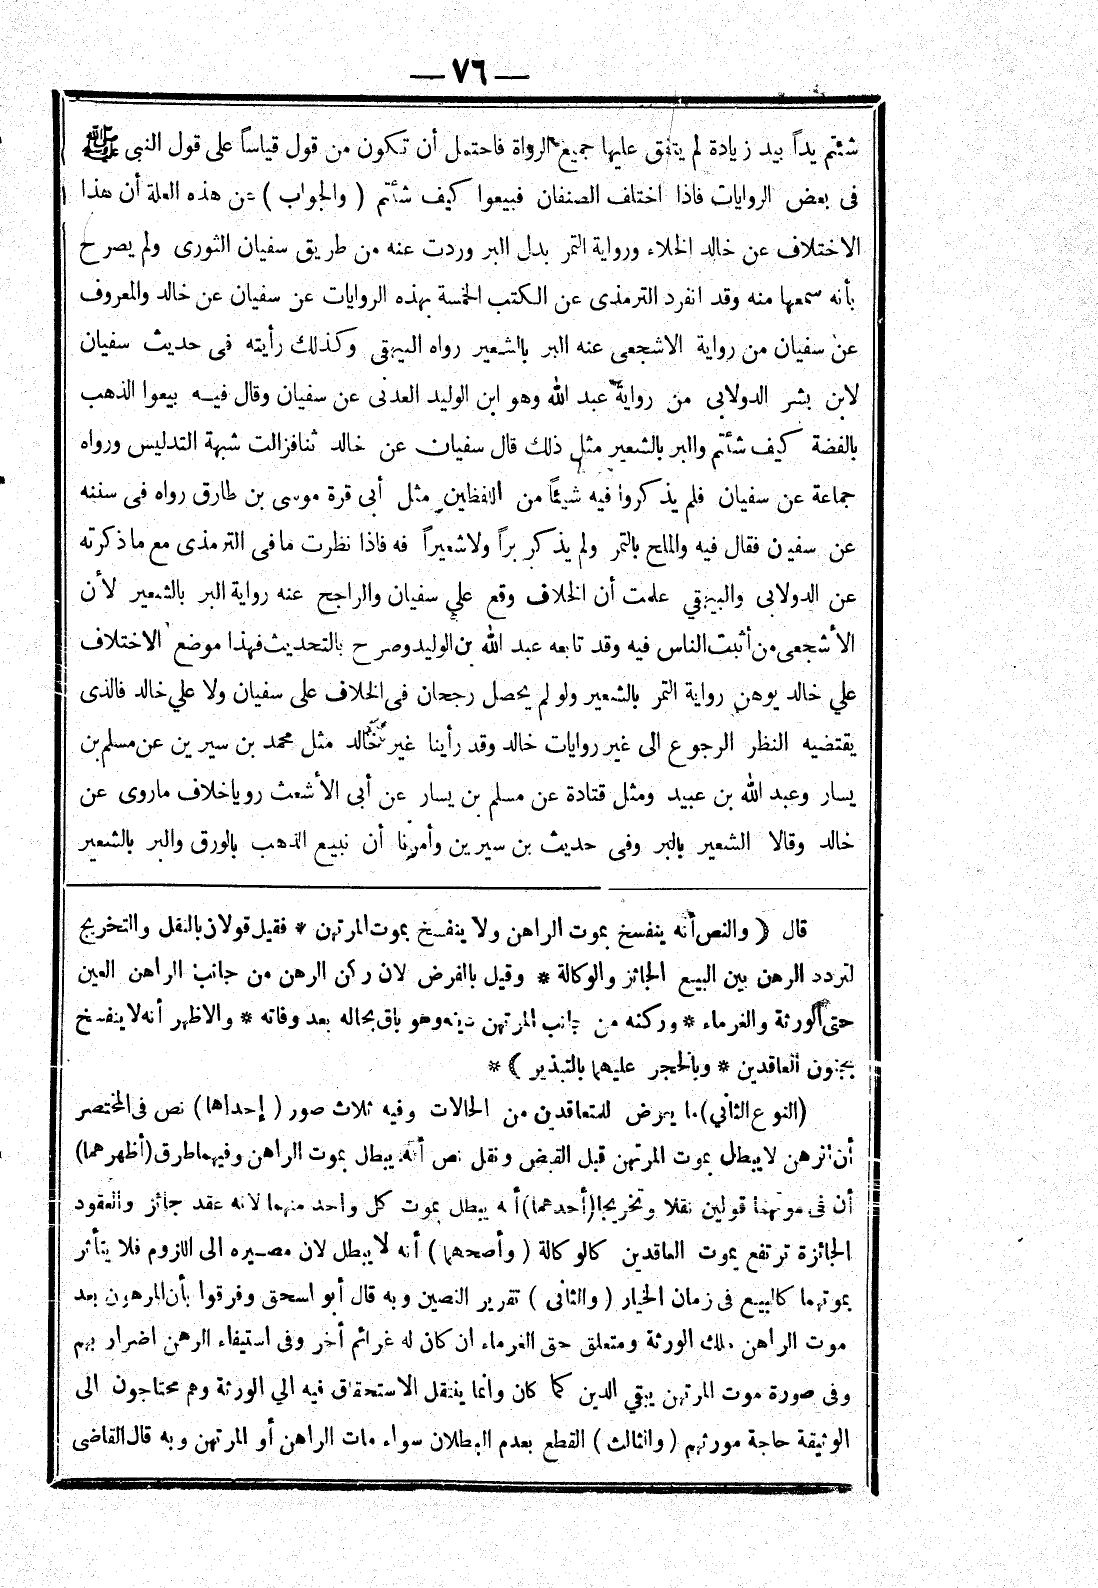 — ٧٦ —
شئتم يداً بيد زيادة لم يتفق عليها جميع الرواة فاحتمل أن تكون من قول قياساً على قول النبى ﷺ
فى بعض الروايات فاذا اختلف الصنفان فبيعوا كيف شئتم ( والجواب ) عن هذه العلة أن هذا
الاختلاف عن خالد الحذاء ورواية التمر بدل البر وردت عنه من طريق سفيان الثورى ولم يصرح
بأنه سمعها منه وقد انفرد الترمذى عن الكتب الخمسة بهذه الروايات عن سفيان عن خالد والمعروف
عن سفيان من رواية الاشجعى عنه البر بالشعير رواه البيهقى وكذلك رأيته فى حديث سفيان
لابن بشر الدولابى من رواية عبد الله وهو ابن الوليد العدنى عن سفيان وقال فيه بيعوا الذهب
بالفضة كيف شئتم والبر بالشعير مثل ذلك قال سفيان عن خالد ثنافزالت شبهة التدليس ورواه
جماعة عن سفيان فلم يذكروا فيه شيئاً من اللفظين مثل أبى قرة موسى بن طارق رواه فى سننه
عن سفين فقال فيه والملح بالتمر ولم يذكر براً ولاشعيراً فه فاذا نظرت مافى الترمذى مع ماذكرته
عن الدولابى والبيهقي علمت أن الخلاف وقع علي سفيان والراجح عنه رواية البر بالشعير لأن
الأشجعى من أثبت الناس فيه وقد تابعه عبد الله بن الوليد وصرح بالتحديث فهذا موضع الاختلاف
علي خالد يوهن رواية التمر بالشعير ولو لم يحصل رجحان فى الخلاف على سفيان ولا علي خالد فالذى
يقتضيه النظر الرجوع الى غير روايات خالد وقد رأينا غير خالد مثل محمد بن سيرين عن مسلم بن
يسار وعبد الله بن عبيد ومثل قتادة عن مسلم بن يسار عن أبى الأشعث رويا خلاف ماروى عن
خالد وقالا الشعير بالبر وفى حديث بن سيرين وأمرنا أن نبيع الذهب بالورق والبر بالشعير
قال ﴿ والنص أنه ينفسخ بموت الراهن ولا ينفسخ بموت المرتهن * فقيل قولان بالنقل والتخريج
لتردد الرهن بين البيع الجائز والوكالة * وقيل بالفرض لان ركن الرهن من جانب الراهن العين
حتى الورثة والغرماء * وركنه من جانب المرتهن دينه وهو باق بحاله بعد وفاته * والاظهر أنه لا ينفسخ
بجنون العاقدين * وبالحجر عليهما بالتبذير ﴾ *
(النوع الثانى) ما يعرض للمتعاقدين من الحالات وفيه ثلاث صور ( إحداها ) نص فى المختصر
أن الرهن لا يبطل بموت المرتهن قبل القبض ونقل نص أنه يبطل بموت الراهن وفيهما طرق (أظهرهما)
أن فى موتهما قولين نقلا وتخريجا (أحدهما) أنه يبطل بموت كل واحد منهما لانه عقد جائز والعقود
الجائزة ترتفع بموت العاقدين كالوكالة ( وأصحهما ) أنه لا يبطل لان مصيره الى اللزوم فلا يتأثر
بموتهما كالبيع فى زمان الخيار ( والثانى ) تقرير النصين وبه قال أبو اسحق وفرقوا بأن المرهون بعد
موت الراهن ملك الورثة ومتعلق حق الغرماء ان كان له غرائم أخر وفى استيفاء الرهن اضرار بهم
وفى صورة موت المرتهن يبقي الدين كما كان وانما ينتقل الاستحقاق فيه الي الورثة وهم محتاجون الى
الوثيقة حاجة مورثهم ( والثالث ) القطع بعدم البطلان سواء مات الراهن أو المرتهن وبه قال القاضى